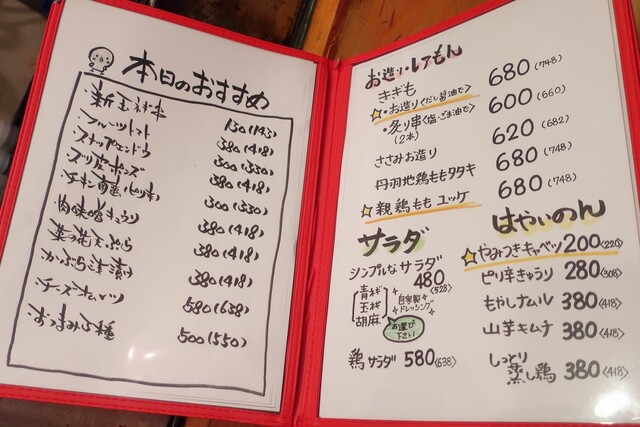 本日のおすすめ
・新玉ねぎ串 130(143)
・フルーツトマト 380(418)
・スナップエンドウ 300(330)
・ブリ皮ポンズ 380(418)
・チキン南蛮ピリ辛 300(330)
・肉味噌キュウリ 380(418)
・菜の花天ぷら 380(418)
・かぶら津漬け 380(418)
・チーズオムレツ 580(638)
・おつまみ5種 500(550)
お造り・しアもん
きぎも
・お造り〈だし醤油で〉 680(748)
・炙り串〈塩・ごま油で〉 600(660)
(2本)
ささみお造り 620(682)
丹羽地鶏ももタタキ 680(748)
親鶏もも ユッケ 680(748)
サラダ
シンプルなサラダ
480
(528)
青ネギ
玉ネギ
胡麻
自家製
ドレッシング
お選び
下さい
鶏サラダ 580(638)
はやいのん
やみつきキャベツ 200(220)
ピリ辛きゅうり 280(308)
もやしナムル 380(418)
山芋キムチ 380(418)
しっとり
蒸し鶏 380(418)